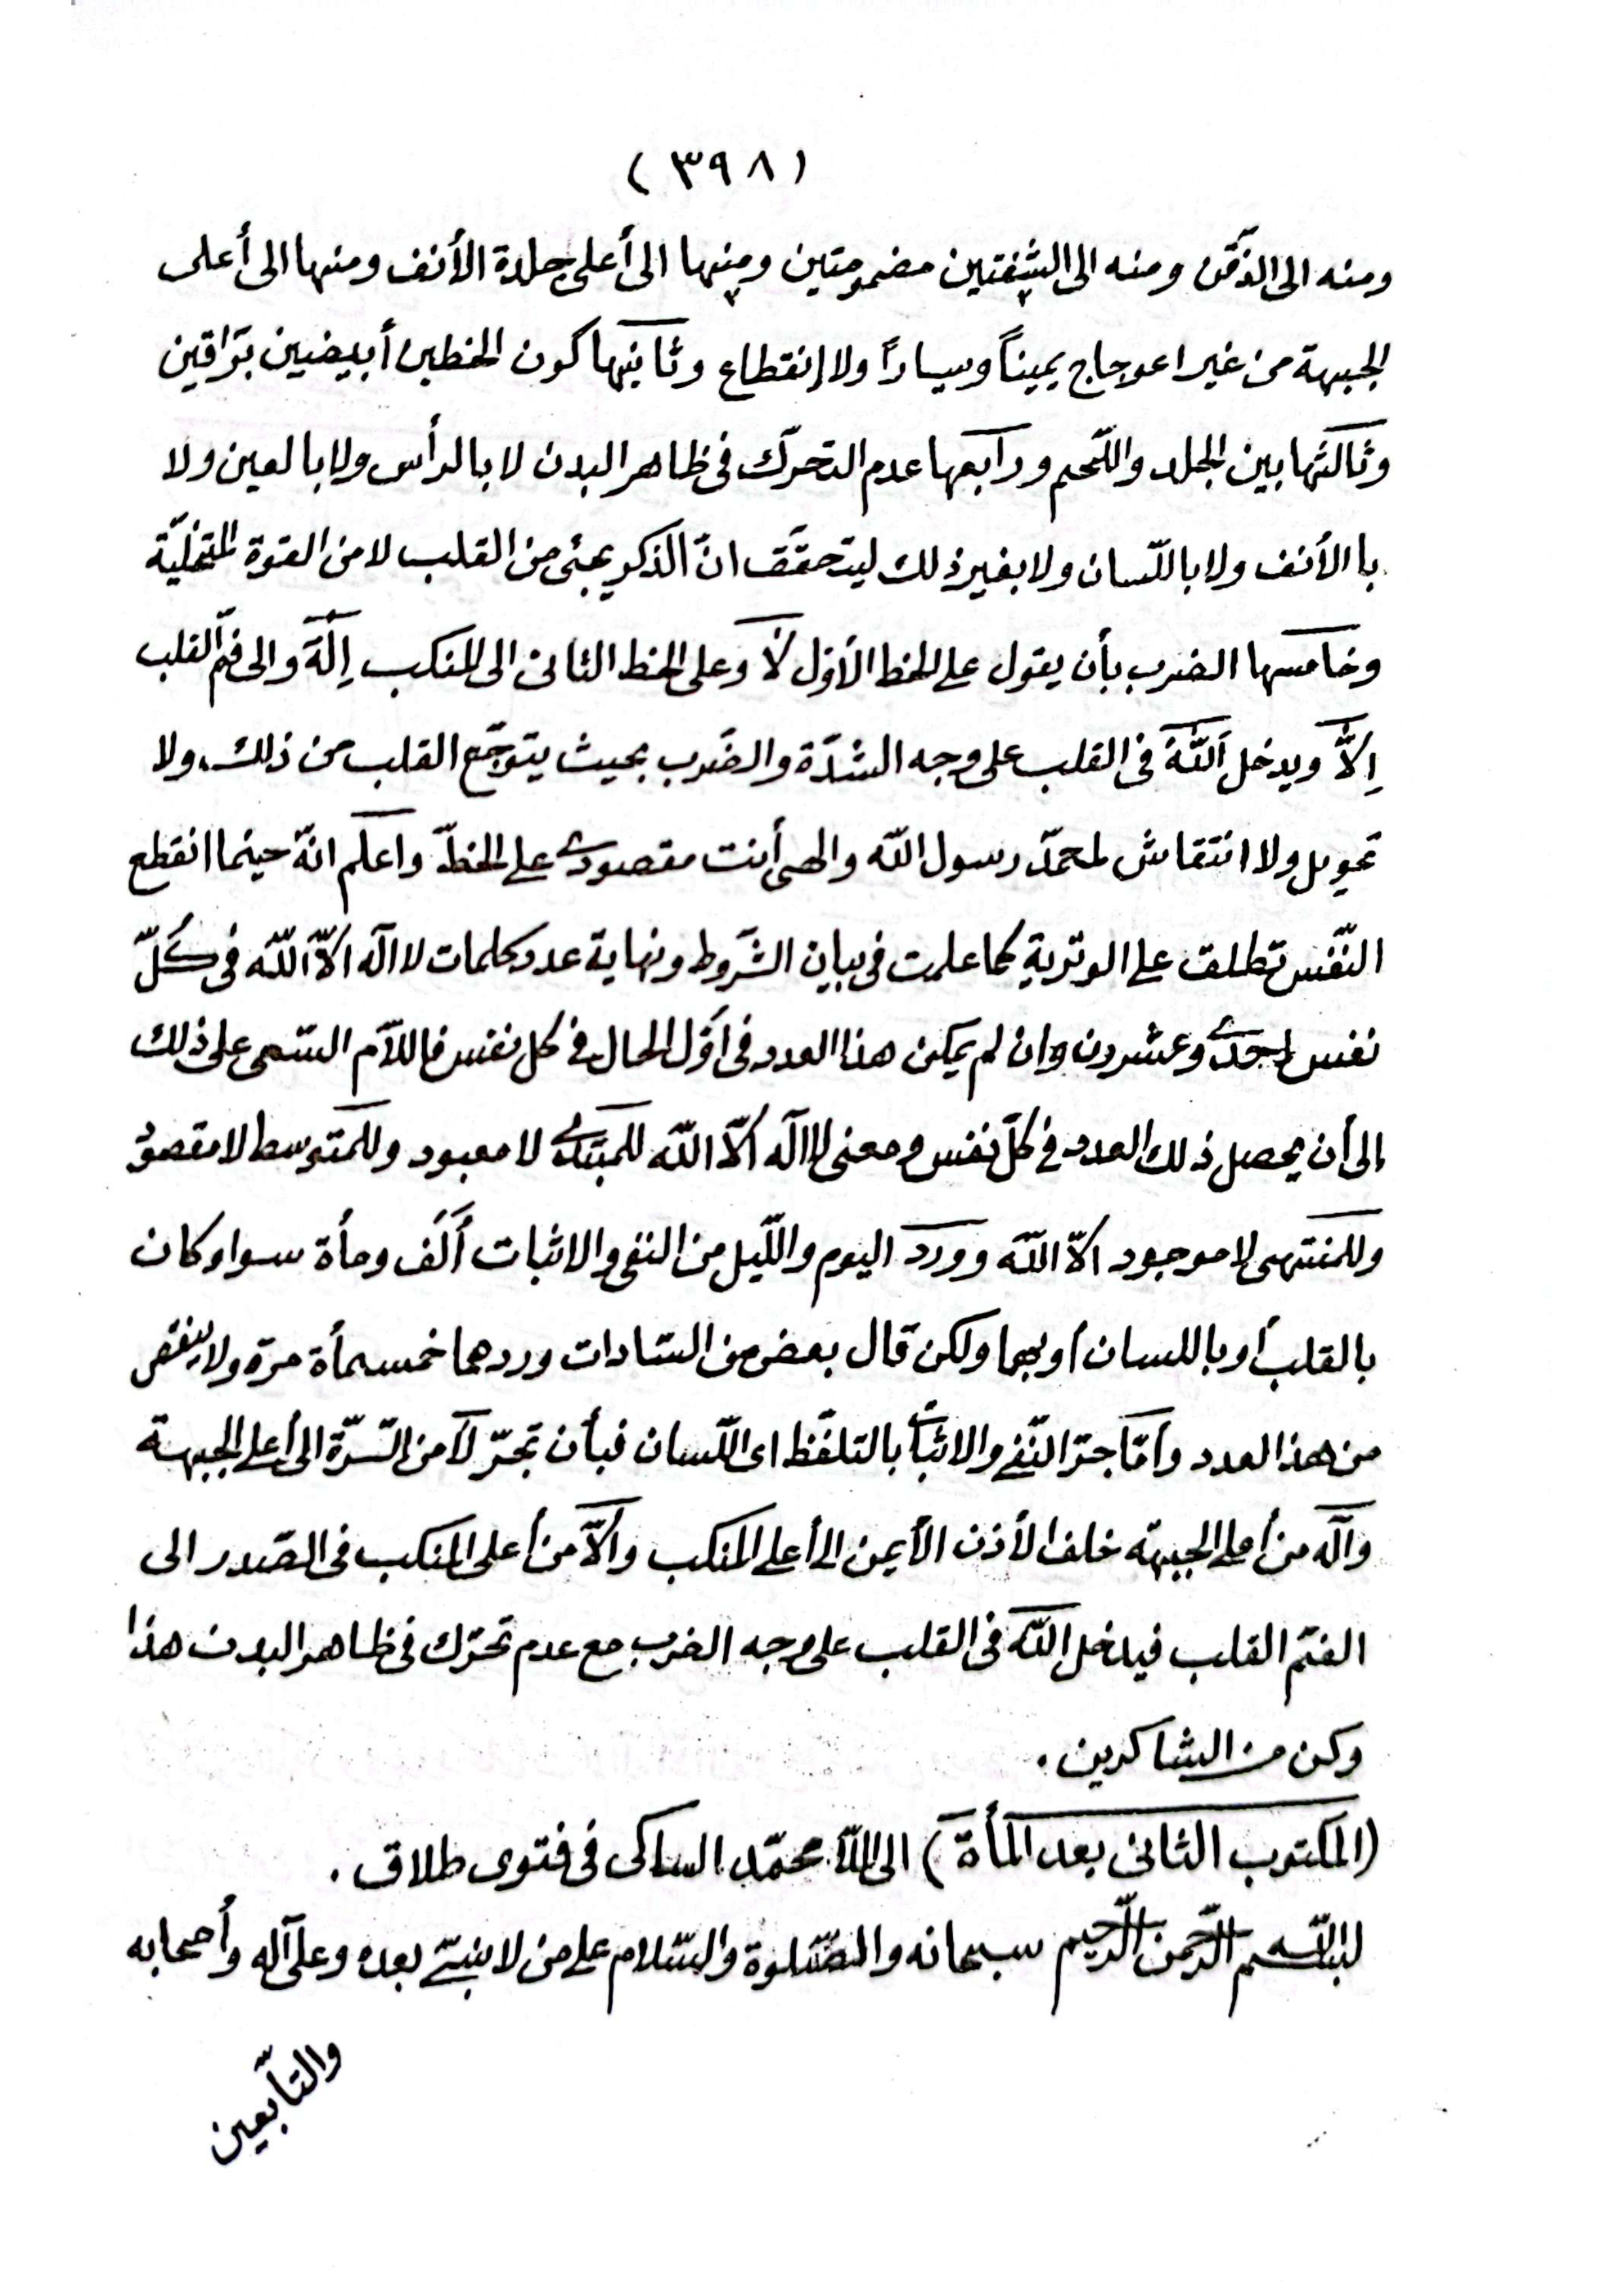 (٣٩٨)
ومنه الى الذّقن ومنه الى الشفتين مضمومتين ومنهما الى أعلى جلدة الأنف ومنها الى أعلى
الجبهة من غير اعوجاج يميناً ويساراً ولا إنقطاع وثانيها كون الخطين أبيضين برّاقين
وثالثها بين الجلد واللّحم ورابعها عدم التحرّك فى ظاهر البدن لا بالرأس ولا بالعين ولا
باالأنف ولا باللّسان ولا بغير ذلك ليتحقّق انّ الذكر يجئ من القلب لا من القوة المتخليّة
وخامسها الضرب بأن يقول على الخط الأوّل لَا وعلى الخط الثانى الى المنكب اِلَهَ والى فم القلب
اِلاَّ ويدخل اَللّهُ فى القلب على وجه الشدّة والضّرب بحيث يتوجّع القلب من ذلك، ولا
تحويل ولا انتقاش لمحمّد رسول اللّه والهى أنت مقصودى على الخطّ واعلم انّه حينما انقطع
النّفس تطلق على الوترية كما علمت فى بيان الشّروط ونهاية عدد كلمات لا اله الاّ اللّه فى كلّ
نفس إحدى وعشرون وإن لم يمكن هذا العدد فى اوّل الحال فى كل نفس فاللاّم السّعى على ذلك
إلى أن يحصل ذلك العدد فى كلّ نفس ومعنى لا اله الاّ اللّه للمبتدى لا معبود وللمتوسط لا مقصود
وللمنتهى لا موجود الاّ اللّه وورد اليوم واللّيل من النفى والاثبات ألف ومأة سواء كان
بالقلب أو باللسان أو بهما ولكن قال بعض من السّادات وردهما خمسمأة مرّة ولا ينقص
من هذا العدد وأمّا جرّ النّفى والاثبات بالتلفّظ اى اللّسان فبأن تجرّ لا من السّرّة الى أعلى الجبهة
واله من أعلى الجبهة خلف الأذن الأيمن الى أعلى المنكب والاّ من أعلى المنكب فى الصّدر الى
الفمّ القلب فيدخل اللّه فى القلب على وجه الضرب مع عدم تحرّك فى ظاهر البدن هذا
وكن من الشاكرين .
(المكتوب الثانى بعد المأة) الى الملاّ محمّد الساكى فى فتوى طلاق .
بسم اللّه الرّحمن الرّحيم سبحانه والصّلوة والسّلام على من لا نبىّ بعده وعلى آله وأصحابه
والتّابعين